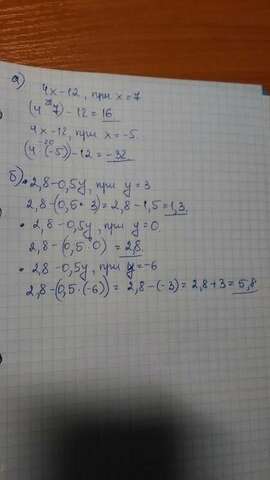 а)
4x-12, при x=7
(4·7)-12=16
28
4x-12, при x=-5
(4·(-5))-12=-32
-20
б)• 2,8-0,5y, при y=3
2,8-(0,5·3)=2,8-1,5=1,3
• 2,8-0,5y, при y=0
2,8-(0,5·0)=2,8
• 2,8-0,5y, при y=-6
2,8-(0,5·(-6))=2,8-(-3)=2,8+3=5,8